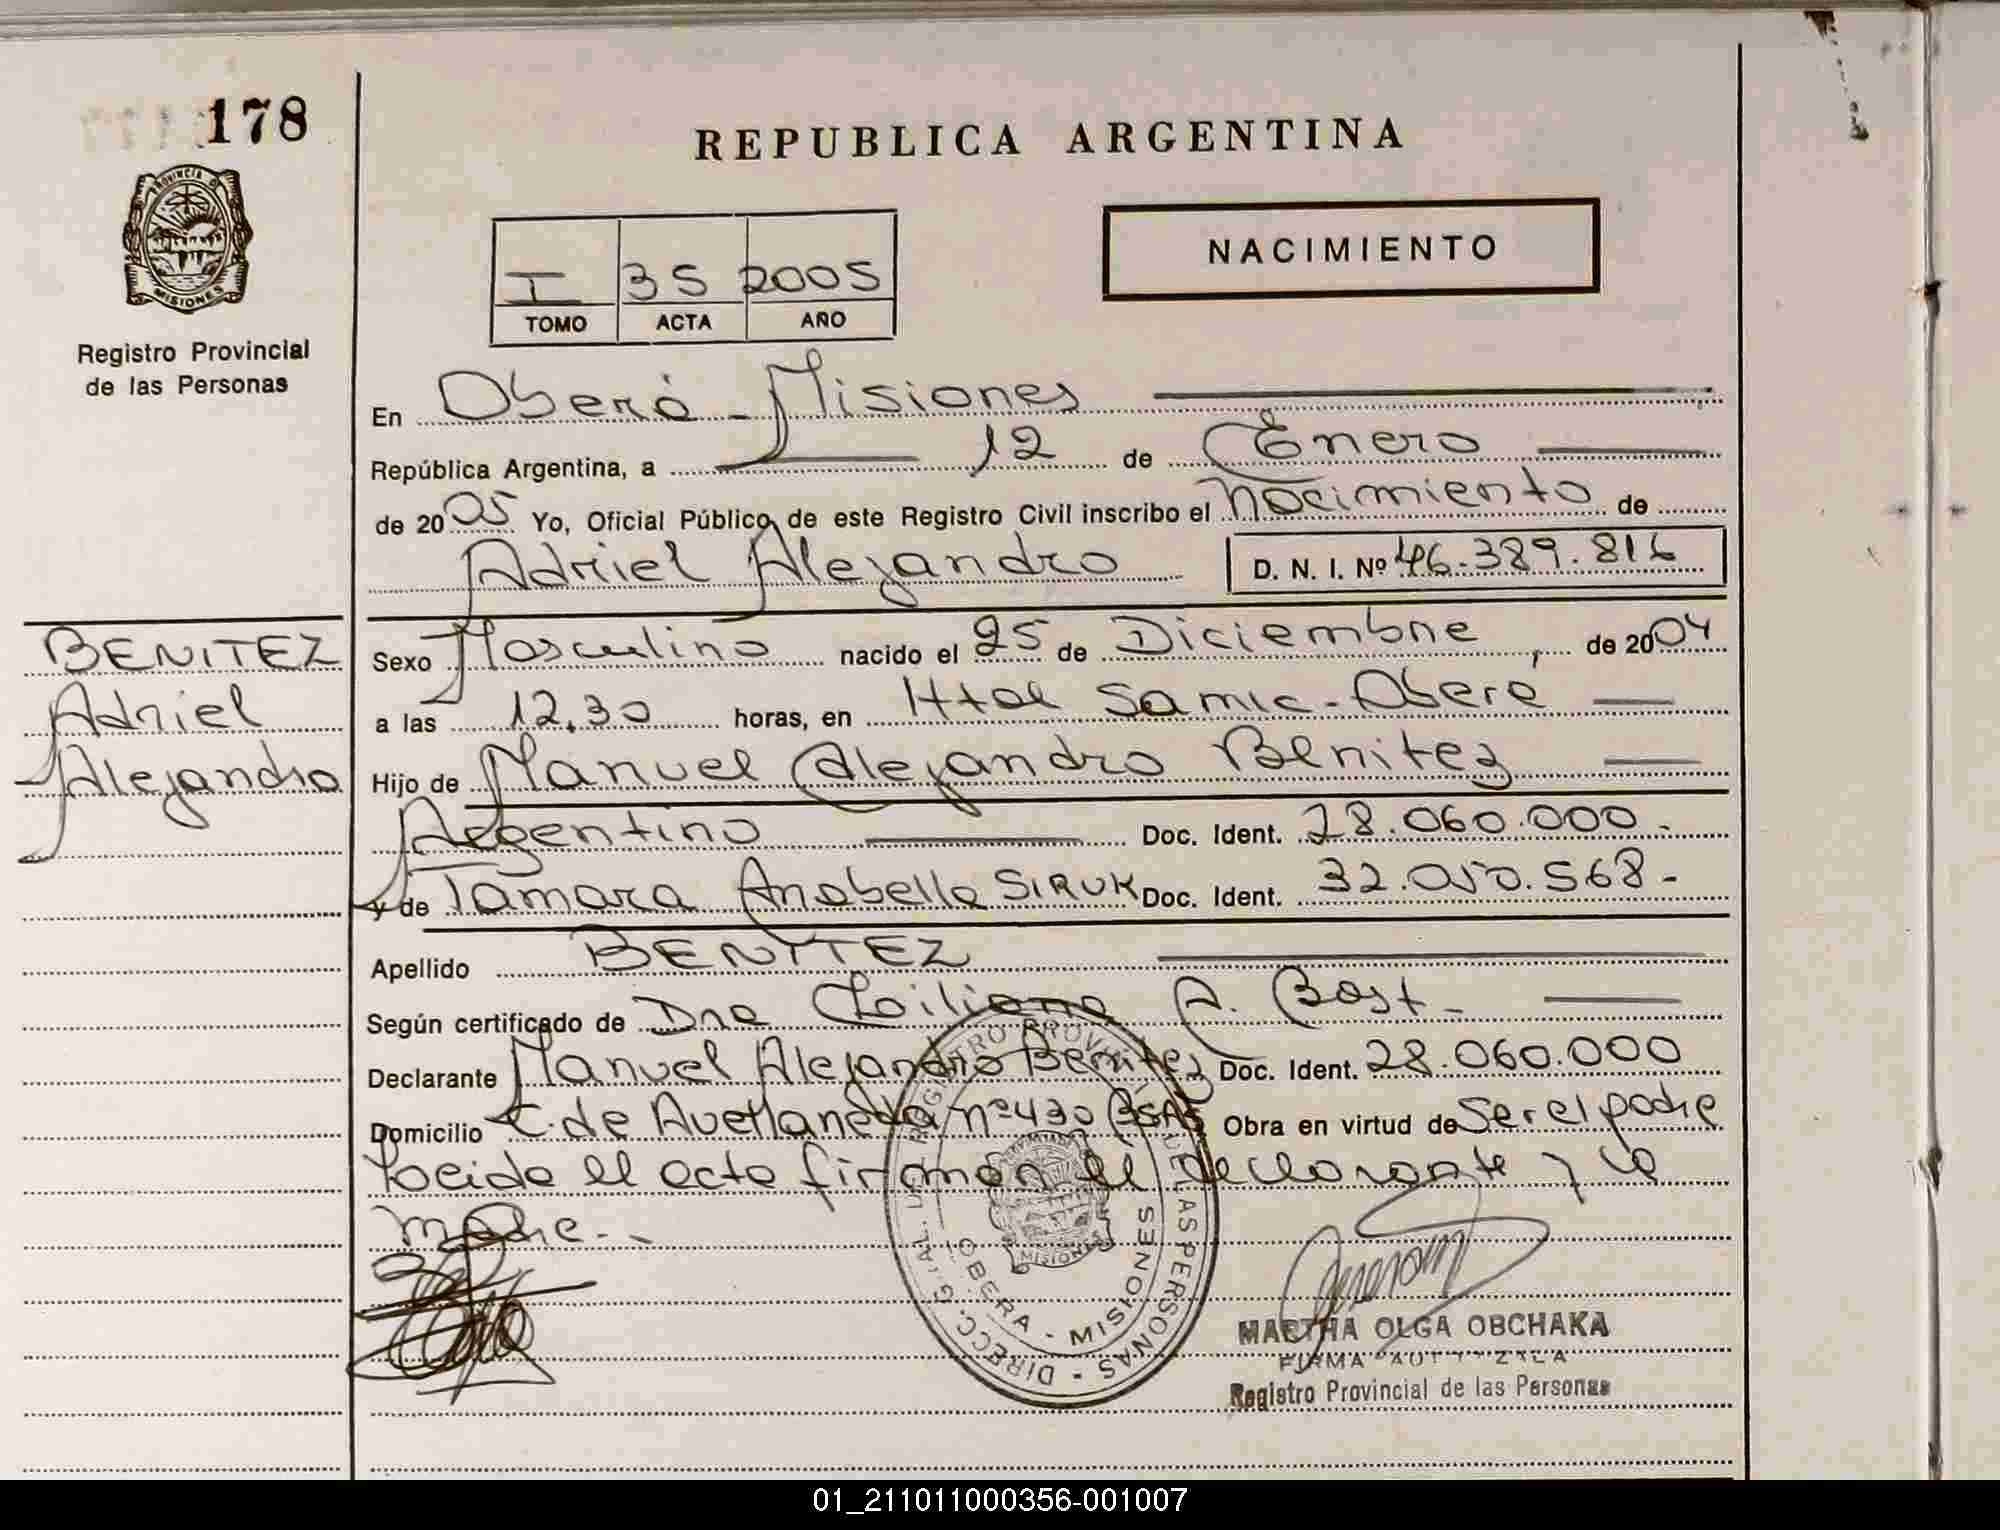 178
PROVINCIA D
MISIONES
Registro Provincial
de las Personas
REPUBLICA ARGENTINA
I 35 2005
TOMO ACTA AÑO
NACIMIENTO
En Oberá - Misiones
República Argentina, a 12 de Enero
de 2005 Yo, Oficial Público, de este Registro Civil inscribo el Nacimiento de
Adriel Alejandro D. N. I. Nº 46.389.816
BENITEZ
Adriel
Alejandro
Sexo Masculino nacido el 25 de Diciembre, de 2004
a las 12,30 horas, en Htal Samic - Oberá
Hijo de Manuel Alejandro Benitez
Argentino Doc. Ident. 28.060.000.
y de Tamara Anabella SIRUK Doc. Ident. 32.050.568-
Apellido BENITEZ
Según certificado de Dra A. Bast-
Declarante Manuel Alejandro Benitez Doc. Ident. 28.060.000
Domicilio C. de Avellaneda nº 430 BSAS Obra en virtud de Ser el padre
Leida el acta firman el declarante y la
madre.-
DIRECC. GRAL. DEL REGISTRO PROVINCIAL DE LAS PERSONAS -
OBERA - MISIONES
MISIONES
MARTHA OLGA OBCHAKA
FIRMA AUTORIZADA
Registro Provincial de las Personas
01_211011000356-001007